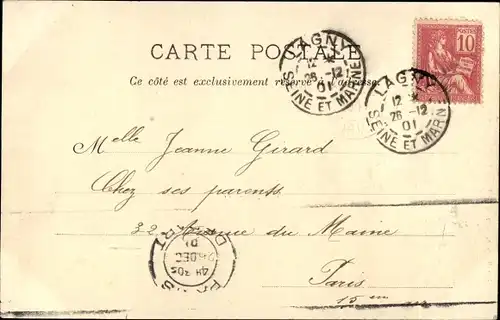 CARTE POSTALE
Ce côté est exclusivement réservé à l'adresse
LAGNY
12 *
26 -12
01
SEINE ET MARNE
POSTES
10
LAGNY
12 *
26 -12
01
SEINE ET MARNE
Melle Jeanne Girard
Chez ses parents
32 Avenue du Maine
Paris
15 em
PARIS
4H 30S
26 DEC
01
DEPART